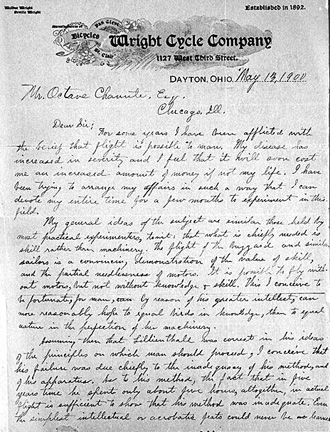 Wilbur Wright
Orville Wright
Established in 1892.
Bicycles
Van Cleve
St. Clair
Wright Cycle Company
1127 West Third Street.
DAYTON, OHIO, May 13, 1900
Mr. Octave Chanute, Esq.
Chicago, Ill.
Dear Sir;
For some years I have been afflicted with
the belief that flight is possible to man. My disease has
increased in severity and I feel that it will soon cost
me an increased amount of money if not my life. I have
been trying to arrange my affairs in such a way that I can
devote my entire time for a few months to experiment in this
field.
My general ideas of the subject are similar those held by
most practical experimenters, to wit: that what is chiefly needed is
skill rather than machinery. The flight of the buzzard and similar
sailors is a convincing demonstration of the value of skill,
and the partial needlessness of motors. It is possible to fly with-
out motors, but not without knowledge & skill. This I conceive to
be fortunate, for man, by reason of his greater intellect, can
more reasonably hope to equal birds in knowledge, than to equal
nature in the perfection of her machinery.
Assuming then that Lilienthal was correct in his ideas
of the principles on which man should proceed, I conceive that
his failure was due chiefly to the inadequacy of his method, and
of his apparatus. As to his method, the fact that in five
years time he spent only about five hours, altogether, in actual
flight is sufficient to show that his method was inadequate. Even
the simplest intellectual or acrobatic feats could never be learned